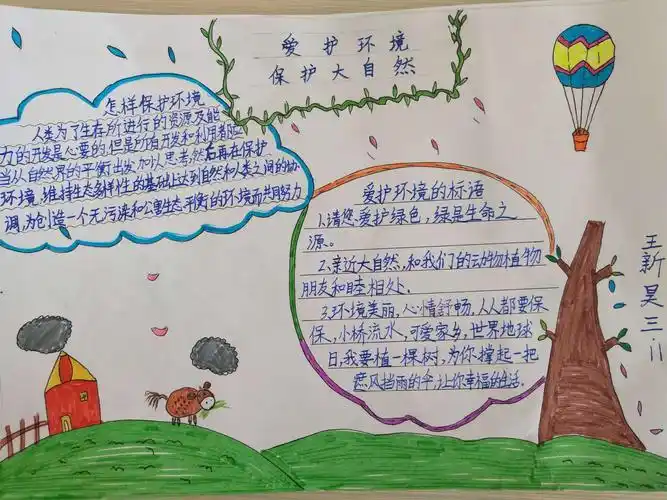 爱护环境
保护大自然
怎样保护环境
人类为了生存所进行的资源及能
力的开发是必要的,但是所有开发和利用者应
当从自然界的平衡出发加以思考,然后再在保护
环境,维持生态多样性的基础上达到自然和人类之间的协
调,为创造一个无污染和公害生态平衡的环境而共同努力
爱护环境的标语
1.请您爱护绿色,绿是生命之
源。
2.亲近大自然,和我们的动物植物
朋友和睦相处。
3.环境美丽,心情舒畅,人人都要保
保,小桥流水,可爱家乡,世界地球
日,我要植一棵树,为你撑起一把
遮风挡雨的伞,让你幸福的生活.
王新昊三·11